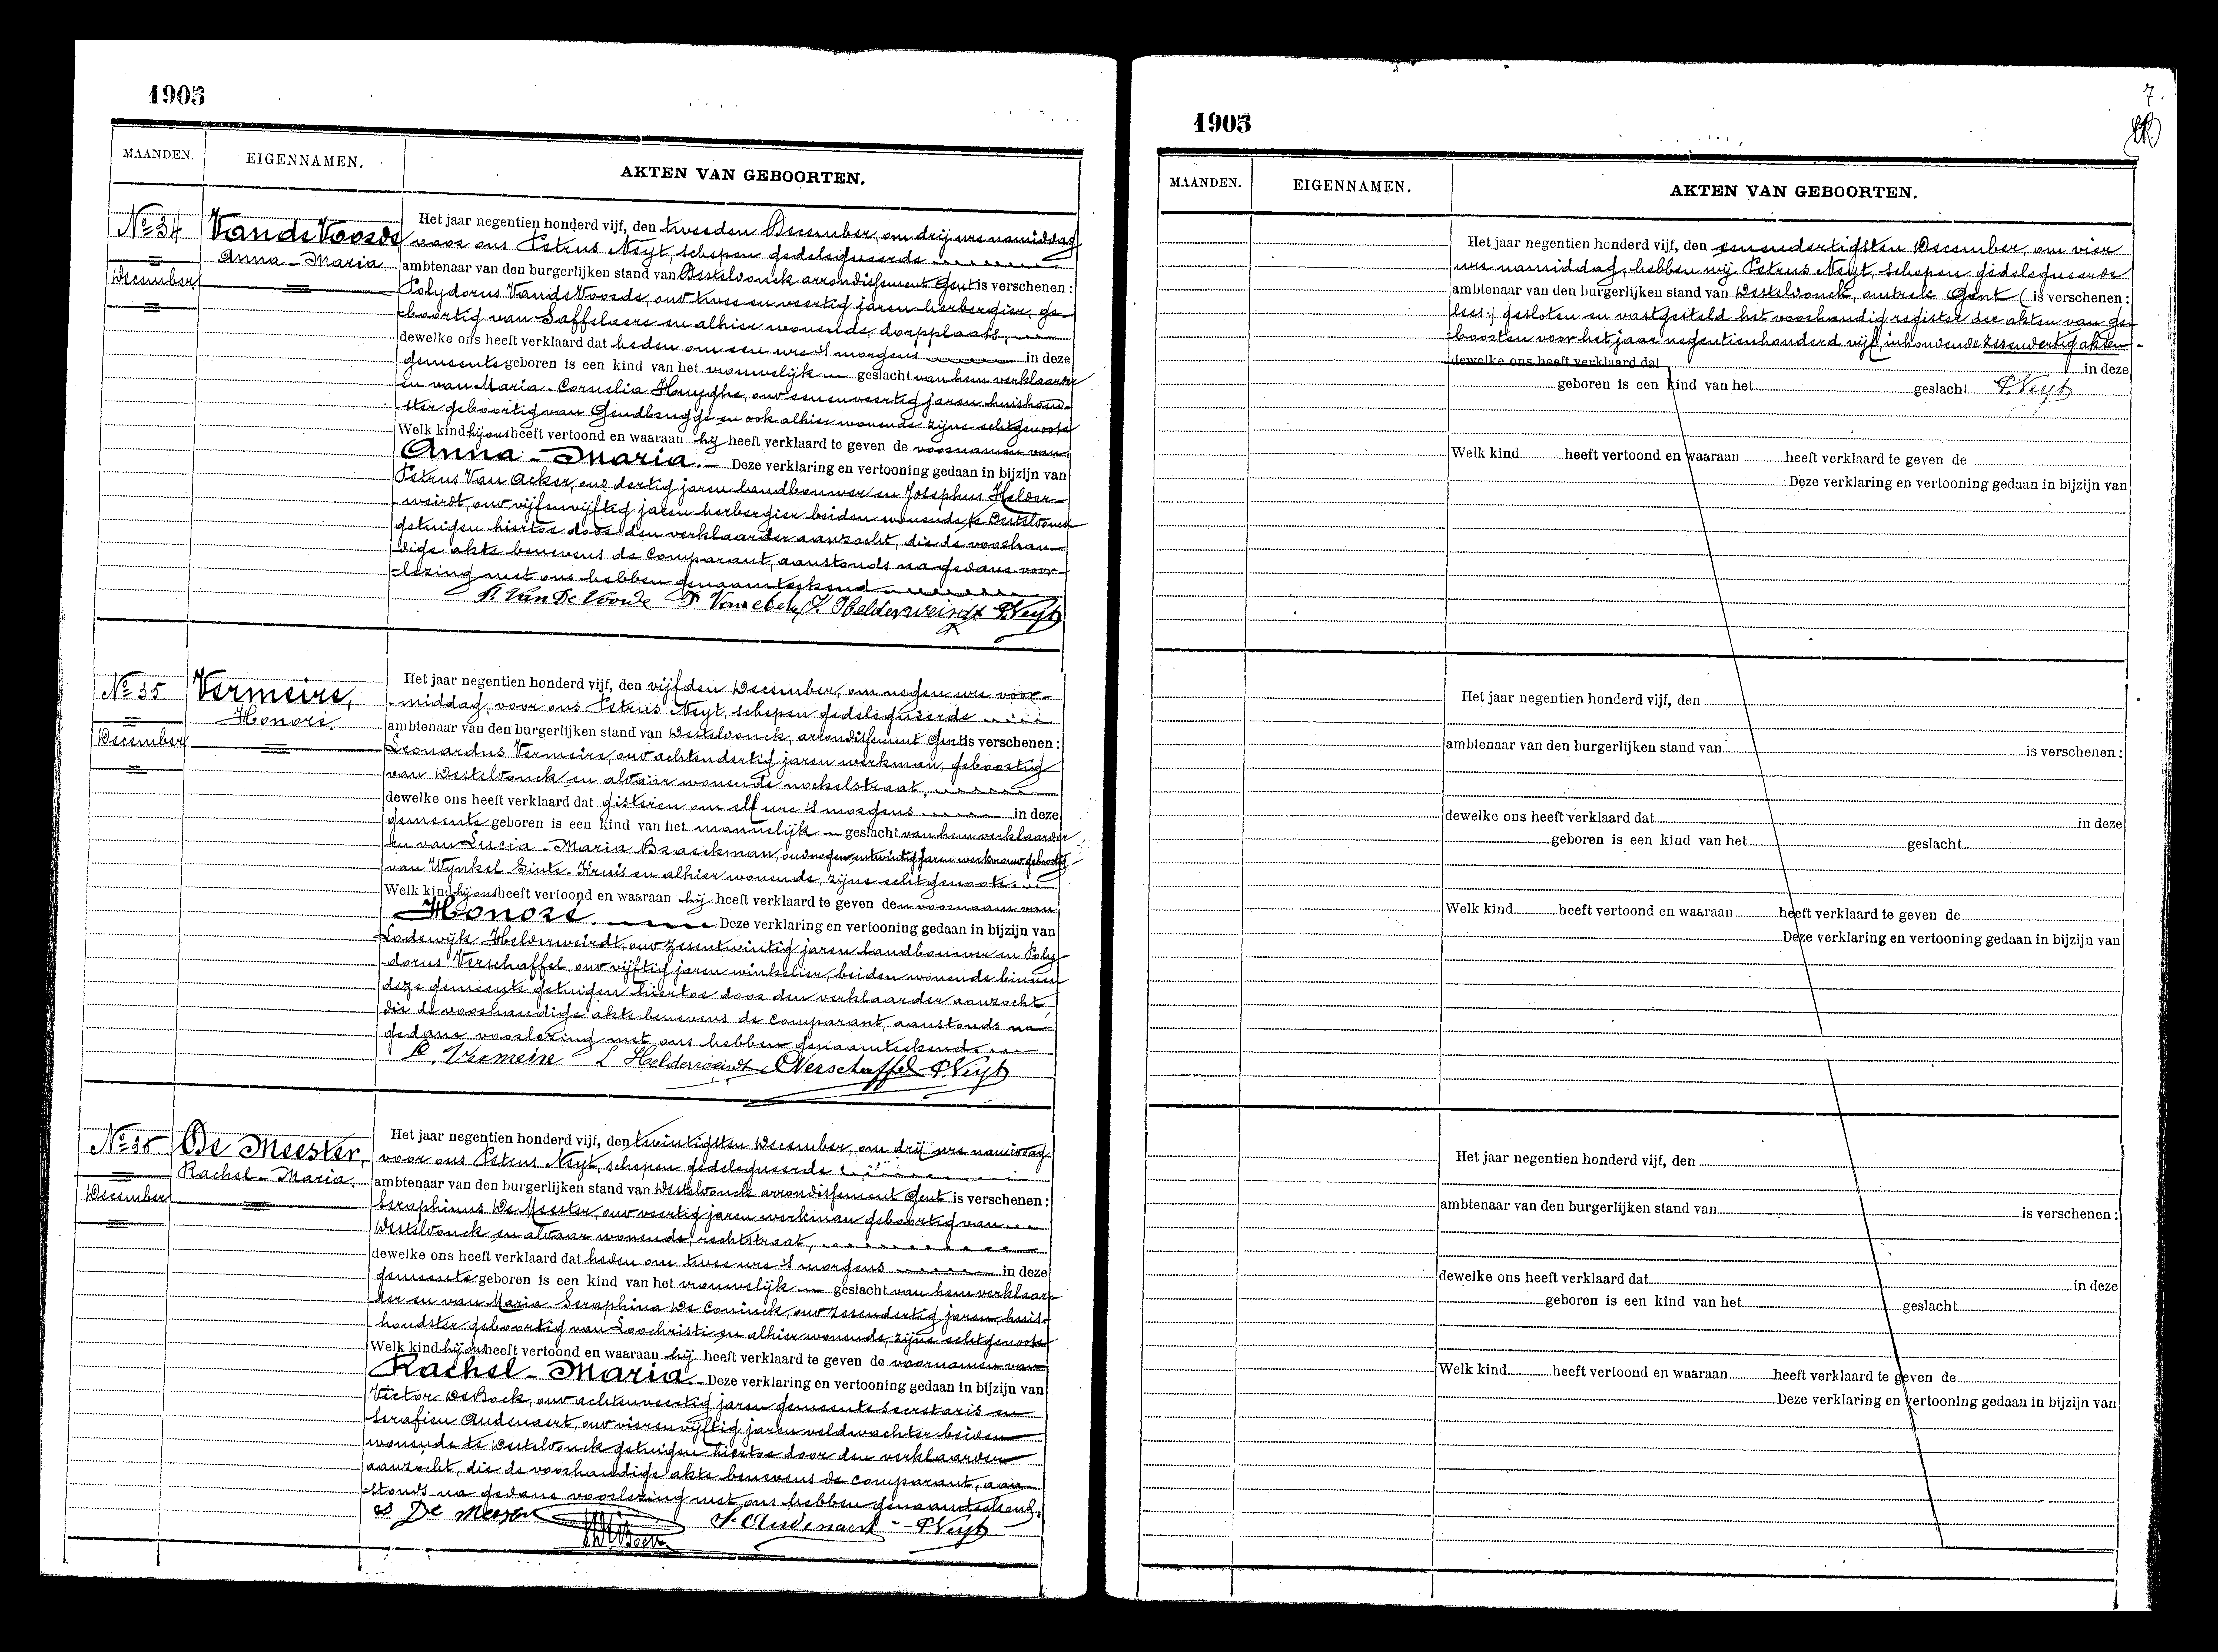 1905
MAANDEN.
EIGENNAMEN.
AKTEN VAN GEBOORTEN.
No 34
December
Van de Voorde
Anna-Maria
Het jaar negentien honderd vijf, den tweeden December, om drij ure namiddag
voor ons Petrus Neyt, schepen gedelegueerde
ambtenaar van den burgerlijken stand van Desteldonck arrondissement Gent is verschenen:
Polydorus Van de Voorde, oud twee en veertig jaren herbergier, ge-
-boortig van Saffelaere en alhier wonende, dorpplaats,
dewelke ons heeft verklaard dat heden om een ure 's morgens in deze
gemeente geboren is een kind van het vrouwelijk geslacht van hem verklaarder
en van Maria-Cornelia Huyghe, oud eenenveertig jaren huishoud-
-ster geboortig van Gendbrugge en ook alhier wonende zijne echtgenoote
Welk kind hij ons heeft vertoond en waaraan hij heeft verklaard te geven de voornamen van
Anna-Maria. Deze verklaring en vertooning gedaan in bijzijn van
Petrus Van Acker, oud dertig jaren landbouwer en Josephus Helder-
-weirdt, oud vijfenvijftig jaren herbergier beiden wonende te Desteldonck
getuigen hiertoe door den verklaarder aanzocht, die de voorhan-
-dige akte benevens de comparant, aanstonds na gedane voor-
-lezing met ons hebben genaamteekend
P. Van De Voorde P Van acker J. Helderweirdt PNeyt
No 35
December
Vermeire,
Honoré.
Het jaar negentien honderd vijf, den vijfden December, om negen ure voor-
-middag, voor ons Petrus Neyt, schepen gedelegueerde
ambtenaar van den burgerlijken stand van Desteldonck, arrondissement Gent is verschenen:
Leonardus Vermeire, oud achtendertig jaren werkman, geboortig
van Desteldonck en aldaar wonende nockelstraat,
dewelke ons heeft verklaard dat gisteren om elf ure 's morgens in deze
gemeente geboren is een kind van het mannelijk geslacht van hem verklaarder
en van Lucia-Maria Braeckman, oud negenentwintig jaren werkvrouw geboortig
van Wynkel-Sinte-Kruis en alhier wonende, zijne echtgenoote
Welk kind hij ons heeft vertoond en waaraan hij heeft verklaard te geven den voornaam van
Honoré. Deze verklaring en vertooning gedaan in bijzijn van
Lodewijk Helderweirdt, oud zesentwintig jaren landbouwer en Poly-
-dorus Verschaffel, oud vijftig jaren winkelier, beiden wonende binnen
deze gemeente getuigen hiertoe door den verklaarder aanzocht,
die de voorhandige akte benevens de comparant, aanstonds na
gedane voorlezing met ons hebben genaamteekend
Vermeire L Helderweirdt Verschaffel PNeyt
No 36
December
De Meester,
Rachel-Maria.
Het jaar negentien honderd vijf, den twintigsten December, om drij ure namiddag
voor ons Petrus Neyt, schepen gedelegueerde
ambtenaar van den burgerlijken stand van Desteldonck arrondissement Gent is verschenen:
Seraphinus De Meester, oud veertig jaren werkman geboortig van
Desteldonck en aldaar wonende, rechtstraat,
dewelke ons heeft verklaard dat heden om twee ure 's morgens in deze
gemeente geboren is een kind van het vrouwelijk geslacht van hem verklaar-
-der en van Maria Seraphina De Coninck, oud zesendertig jaren, huis-
-houdster geboortig van Loochristi en alhier wonende, zijne echtgenoote
Welk kind hij ons heeft vertoond en waaraan hij heeft verklaard te geven de voornamen van
Rachel-Maria. Deze verklaring en vertooning gedaan in bijzijn van
Victor De Bock, oud achtenveertig jaren gemeentesecretaris en
Serafien Audenaert, oud vierenvijftig jaren veldwachter beiden
wonende te Desteldonck getuigen hiertoe door den verklaarder
aanzocht, die de voorhandige akte benevens de comparant, aan-
-stonds na gedane voorlezing met ons hebben genaamteekend.
S De Meester S. Audenaert PNeyt
7.
1905
MAANDEN.
EIGENNAMEN.
AKTEN VAN GEBOORTEN.
Het jaar negentien honderd vijf, den eenendertigsten December, om vier
ure namiddag, hebben wij Petrus Neyt, schepen gedelegueerde
ambtenaar van den burgerlijken stand van Desteldonck, omtrek Gent ( is verschenen:
lees:) gesloten en vastgesteld het voorhandig register der akten van ge-
-boorten voor het jaar negentienhonderd vijf, inhoudende zesendertig akten.
dewelke ons heeft verklaard dat in deze
geboren is een kind van het geslacht PNeyt
Welk kind heeft vertoond en waaraan heeft verklaard te geven de
Deze verklaring en vertooning gedaan in bijzijn van
Het jaar negentien honderd vijf, den
ambtenaar van den burgerlijken stand van is verschenen:
dewelke ons heeft verklaard dat in deze
geboren is een kind van het geslacht
Welk kind heeft vertoond en waaraan heeft verklaard te geven de
Deze verklaring en vertooning gedaan in bijzijn van
Het jaar negentien honderd vijf, den
ambtenaar van den burgerlijken stand van is verschenen:
dewelke ons heeft verklaard dat in deze
geboren is een kind van het geslacht
Welk kind heeft vertoond en waaraan heeft verklaard te geven de
Deze verklaring en vertooning gedaan in bijzijn van